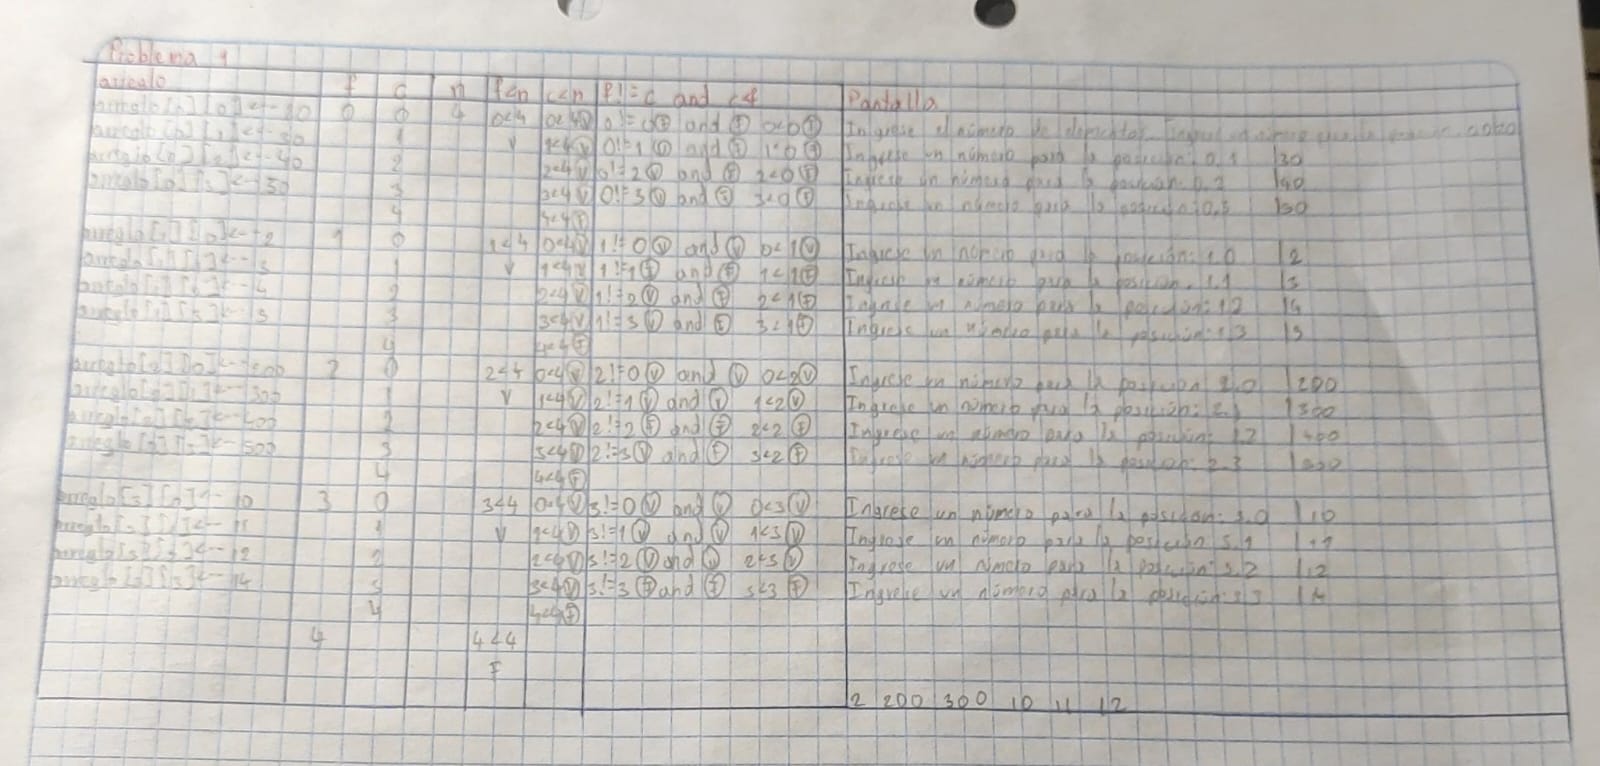 Problema 1
arreglo f c n f<n c<n f!=c and c<f Pantalla
arreglo[0][0]<-- 0 0 4 0<4 0<4 V 0!=0 F and F 0<0 F Ingrese el número de
arreglo[0][1]<-- 30 1 V 1<4 V 0!=1 V and F 1<0 F Ingrese un número para la posición: 0,1 |30
arreglo[0][2]<-- 40 2 2<4 V 0!=2 V and F 2<0 F Ingrese un número para la posición: 0,2 |40
arreglo[0][3]<-- 50 3 3<4 V 0!=3 V and F 3<0 F Ingrese un número para la posición: 0,3 |50
4 4<4 F
arreglo[1][0]<-- 2 1 0 1<4 0<4 V 1!=0 V and V 0<1 V Ingrese un número para la posición: 1,0 |2
arreglo[1][1]<-- 3 1 V 1<4 V 1!=1 F and F 1<1 F Ingrese un número para la posición: 1,1 |3
arreglo[1][2]<-- 4 2 2<4 V 1!=2 V and F 2<1 F Ingrese un número para la posición: 1,2 |4
arreglo[1][3]<-- 3 3<4 V 1!=3 V and F 3<1 F Ingrese un número para la posición: 1,3
4 4<4 F
arreglo[2][0]<-- 200 2 0 2<4 0<4 V 2!=0 V and V 0<2 V Ingrese un número para la posición: 2,0 |200
arreglo[2][1]<-- 300 1 V 1<4 V 2!=1 V and V 1<2 V Ingrese un número para la posición: 2,1 |300
arreglo[2][2]<-- 400 2 2<4 V 2!=2 F and F 2<2 F Ingrese un número para la posición: |400
arreglo[2][3]<-- 500 3 3<4 V 2!=3 V and F 3<2 F Ingrese un número para la posición: 2.3 |500
4 4<4 F
arreglo[3][0]<-- 10 3 0 3<4 0<4 V 3!=0 V and V 0<3 V Ingrese un número para la posición: 3.0 |10
arreglo[3][1]<-- 11 1 V 1<4 V 3!=1 V and V 1<3 V Ingrese un número para la posición 3,1 |11
arreglo[3][2]<-- 12 2 2<4 V 3!=2 V and V 2<3 V Ingrese un número para la posición: 3,2 |12
arreglo[3][3]<-- 14 3 3<4 V 3!=3 F and F 3<3 F Ingrese un número para la posición: 3,3
4 4<4 F
4 4<4
F
2 200 300 10 11 12